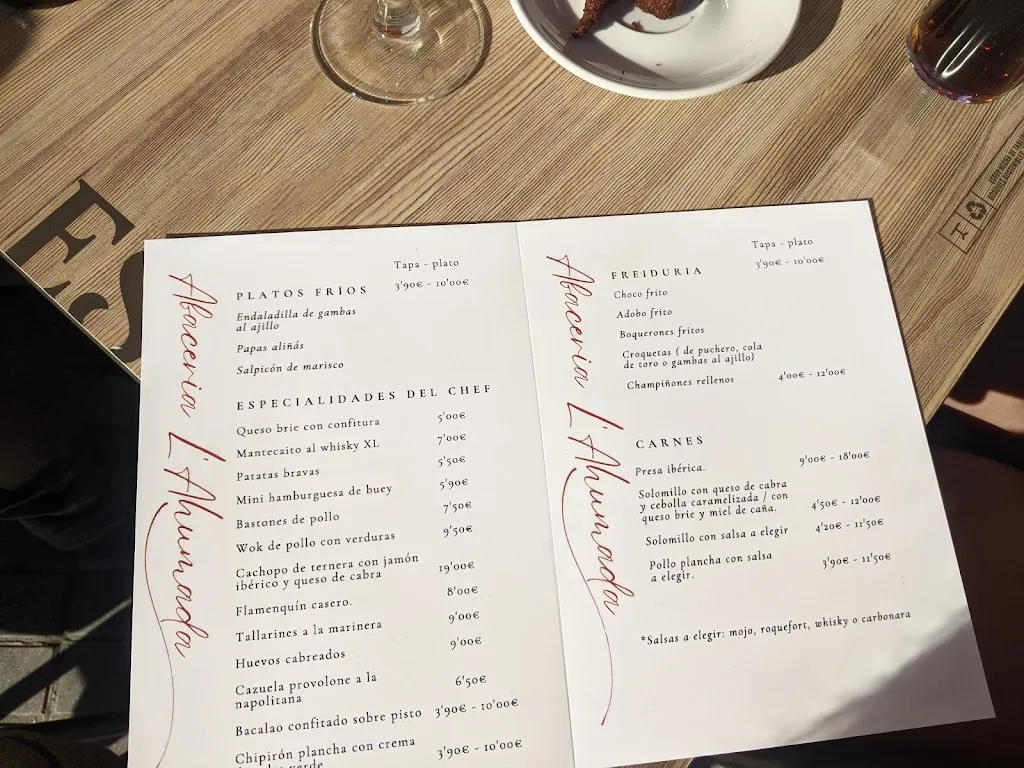 Abaceria L'Ahumada
Tapa - plato
PLATOS FRÍOS 3'90€ - 10'00€
Endaladilla de gambas
al ajillo
Papas aliñás
Salpicón de marisco
ESPECIALIDADES DEL CHEF
Queso brie con confitura 5'00€
Mantecaito al whisky XL 7'00€
Patatas bravas 5'50€
Mini hamburguesa de buey 5'90€
Bastones de pollo 7'50€
Wok de pollo con verduras 9'50€
Cachopo de ternera con jamón
ibérico y queso de cabra 19'00€
Flamenquín casero. 8'00€
Tallarines a la marinera 9'00€
Huevos cabreados 9'00€
Cazuela provolone a la
napolitana 6'50€
Bacalao confitado sobre pisto 3'90€ - 10'00€
Chipirón plancha con crema 3'90€ - 10'00€
verde
Abaceria L'Ahumada
Tapa - plato
FREIDURIA 3'90€ - 10'00€
Choco frito
Adobo frito
Boquerones fritos
Croquetas ( de puchero, cola
de toro o gambas al ajillo)
Champiñones rellenos 4'00€ - 12'00€
CARNES
Presa ibérica. 9'00€ - 18'00€
Solomillo con queso de cabra
y cebolla caramelizada / con
queso brie y miel de caña. 4'50€ - 12'00€
Solomillo con salsa a elegir 4'20€ - 11'50€
Pollo plancha con salsa
a elegir. 3'90€ - 11'50€
*Salsas a elegir: mojo, roquefort, whisky o carbonara
ES